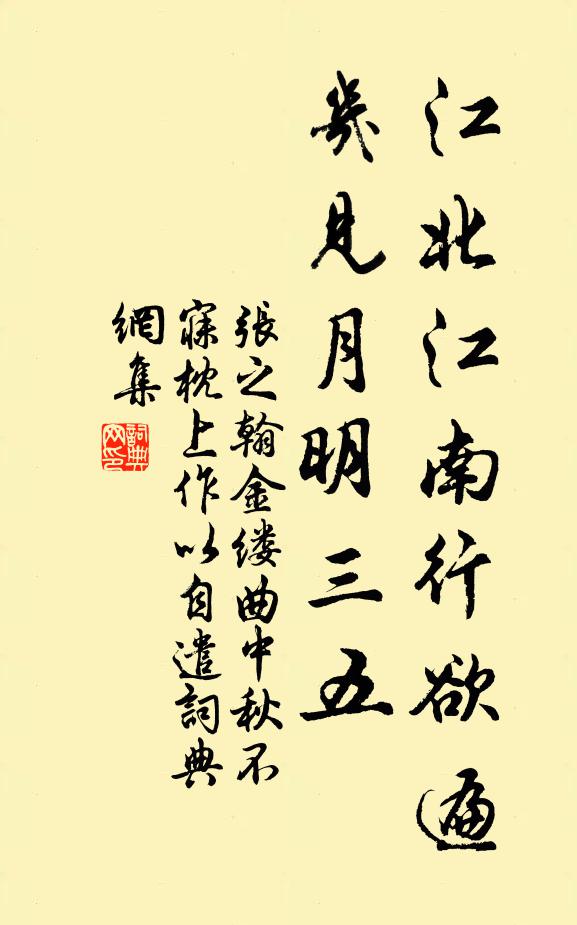 江北江南行欲遍
幾見月明三五
張之翰金缕曲中秋不
寐枕上作以自遣詞典
網集
詞典
网印